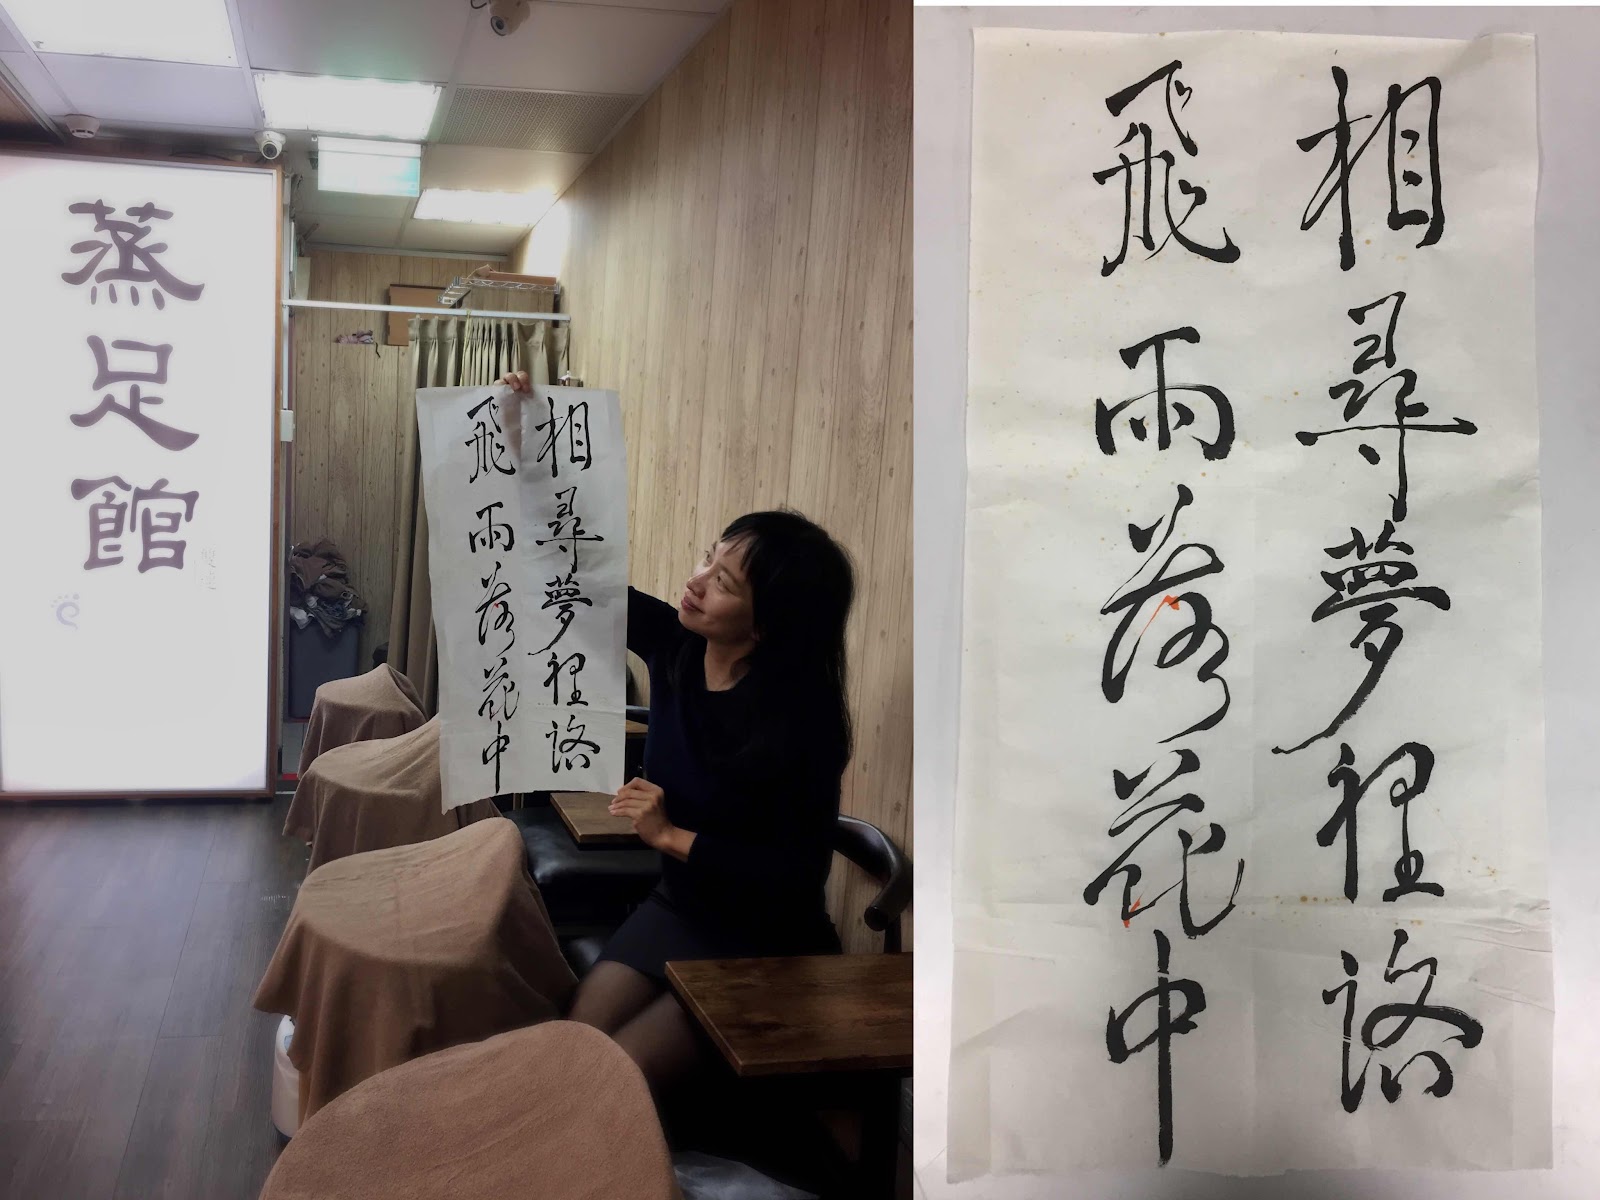 蒸足館
相尋夢裡路
飛雨落花中
相尋夢裡路
飛雨落花中